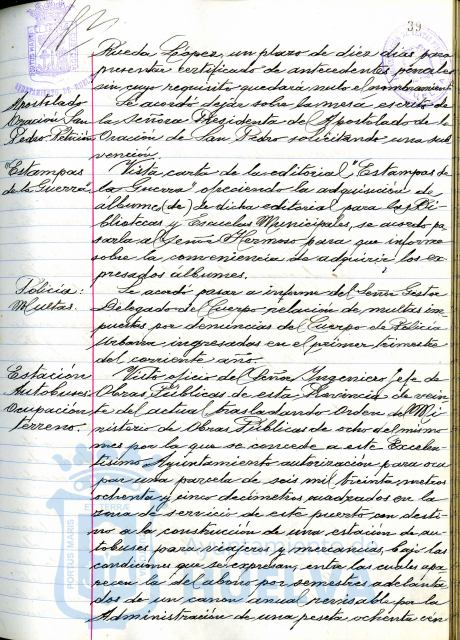 39
Rueda López, un plazo de diez días para
presentar certificado de antecedentes penales
sin cuyo requisito quedará nulo el nombramiento
Apostolado
Oración San
Pedro. Petición
Se acordó dejar sobre la mesa escrito de
la señora Presidenta del Apostolado de la
Oración de San Pedro solicitando una sub
vención.
"Estampas
de la Guerra"
Vista carta de la editorial "Estampas de
la Guerra" ofreciendo la adquisición de
álbumes (de) de dicha editorial para las Bi
bliotecas y Escuelas Municipales, se acordó pa
sarla al Señor Hermoso para que informe
sobre la conveniencia de adquirir los ex
presados álbumes.
Policía:
Multas.
Se acordó pasar a informe del Señor Gestor
Delegado del Cuerpo relación de multas im
puestas por denuncias del Cuerpo de Policía
Urbana ingresadas en el primer trimestre
del corriente año.
Estación
Autobuses
Ocupación
terreno.
Visto oficio del Señor Ingeniero Jefe de
Obras Públicas de esta Provincia de vein
te del actual trasladando Orden del Mi
nisterio de Obras Públicas de ocho del mismo
mes por la que se concede a este Excelen
tísimo Ayuntamiento autorización para ocu
par una parcela de seis mil treinta metros
ochenta y cinco decímetros cuadrados en la
zona de servicio de este puerto con desti
no a la construcción de una estación de au
tobuses para viajeros y mercancías, bajo las
condiciones que se expresan, entre las cuales apa
recen la del abono por semestres adelanta
dos de un canon anual revisable por la
Administración de una peseta ochenta cen
PORTUS MARIS
Ayuntamiento de
HUELVA